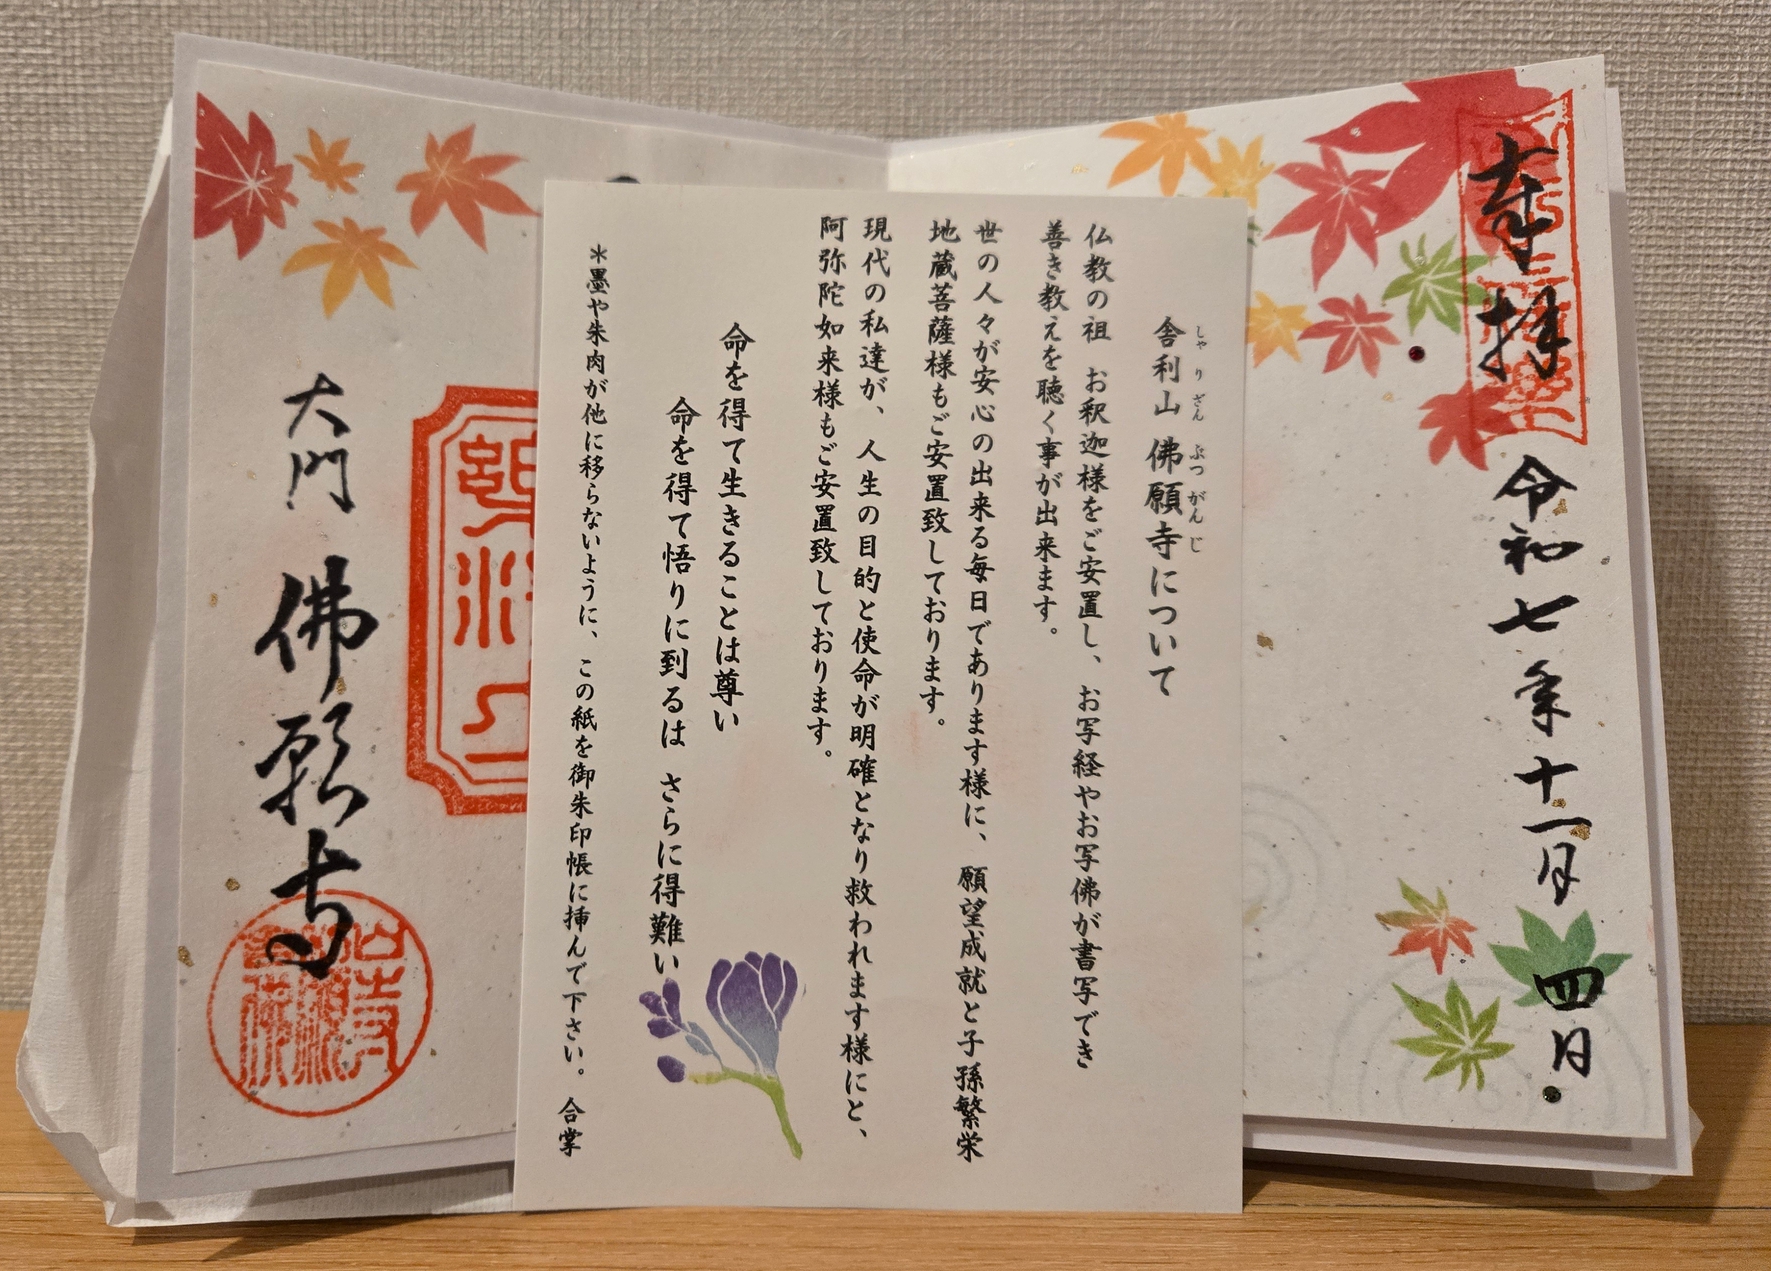 奉拝
令和七年十一月四日
舎利山 佛願寺について
しゃりざん ぶつがんじ
仏教の祖 お釈迦様をご安置し、お写経やお写佛が書写でき
善き教えを聴く事が出来ます。
世の人々が安心の出来る毎日であります様に、願望成就と子孫繁栄
地蔵菩薩様もご安置致しております。
現代の私達が、人生の目的と使命が明確となり救われます様にと、
阿弥陀如来様もご安置致しております。
命を得て生きることは尊い
命を得て悟りに到るは さらに得難い
＊墨や朱肉が他に移らないように、この紙を御朱印帳に挿んで下さい。 合掌
大門 佛願寺